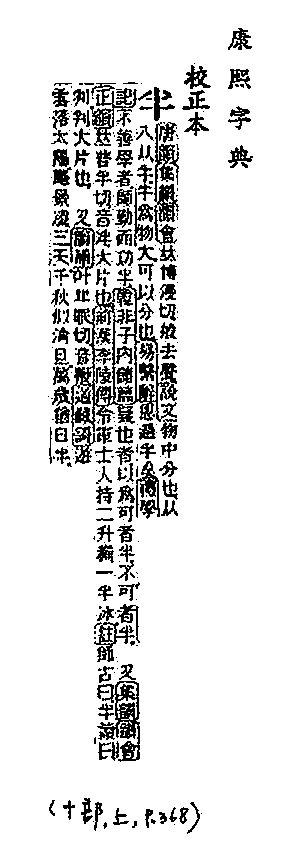 康熙字典
校正本
半
唐韻集韻韻會𠀤博漫切般去聲說文物中分也从
八从牛牛爲物大可以分也易繫辭思過半矣禮學
記不善學者師勤而功半韓非子內儲篇疑也者以爲可者半不可者半 又集韻韻會
正韻𠀤普半切音泮大片也前漢李陵傳令軍士人持二升糒一半冰註師古曰半讀曰
判判大片也 又韻補叶卑眠切音鞭道藏歌遊
雲落太陽飈景凌三天千秋似清旦萬歲猶日半
(十部,上,P.368)